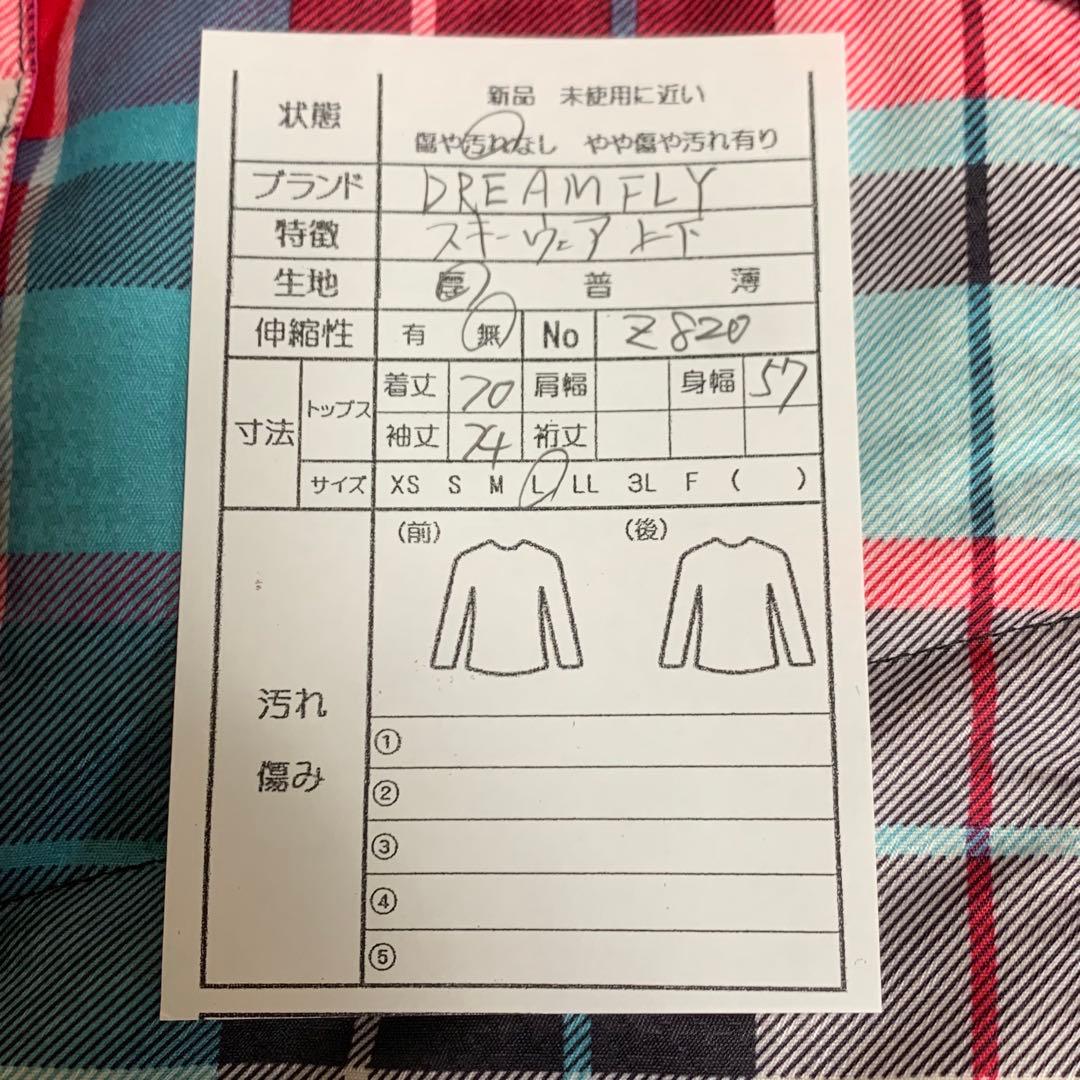 状態
新品 未使用に近い
傷や汚れなし やや傷や汚れ有り
ブランド DREAMFLY
特徴 スキーウェア上下
生地 厚 普 薄
伸縮性 有 無 No Z820
寸法
トップス
着丈 70 肩幅 身幅 57
袖丈 74 裄丈
サイズ XS S M L LL 3L F ( )
汚れ
傷み
(前) (後)
①
②
③
④
⑤